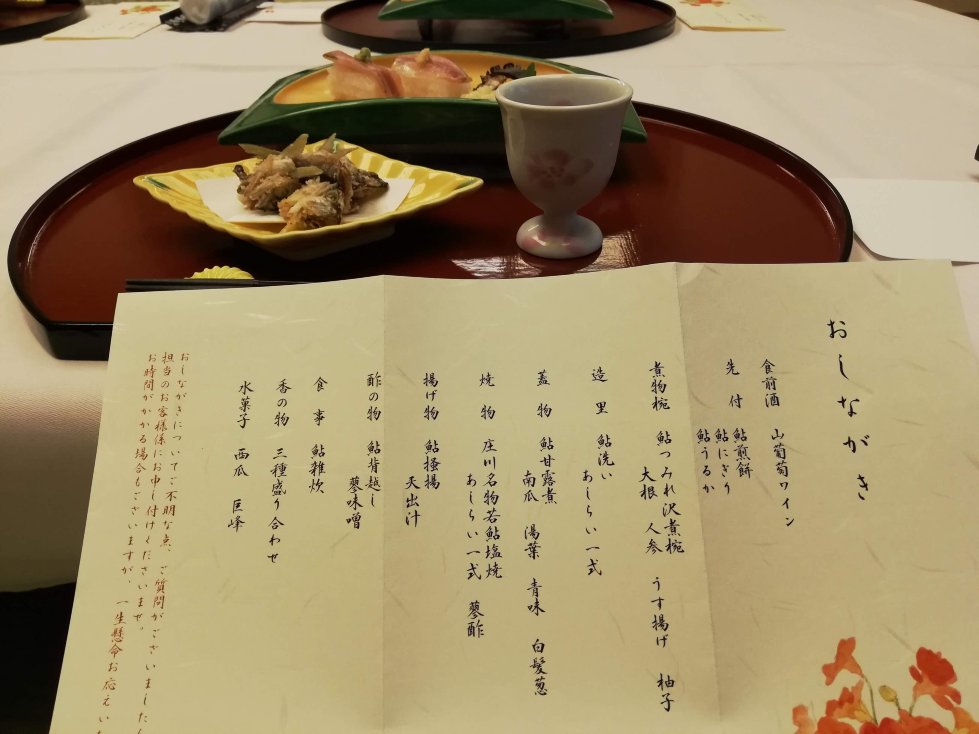 おしながき
食前酒 山葡萄ワイン
先付 鮎煎餅
鮎にぎり
鮎うるか
煮物椀 鮎つみれ沢煮椀
大根 人参 うす揚げ 柚子
造里 鮎洗い
あしらい一式
蓋物 鮎甘露煮
南瓜 湯葉 青味 白髪葱
焼物 庄川名物若鮎塩焼
あしらい一式 蓼酢
揚げ物 鮎掻揚
天出汁
酢の物 鮎背越し
蓼味噌
食事 鮎雑炊
香の物 三種盛り合わせ
水菓子 西瓜 巨峰
おしながきについてご不明な点、ご質問がございましたら
担当のお客様係にお申し付けくださいませ。
お時間がかかる場合もございますが、一生懸命お応えいた